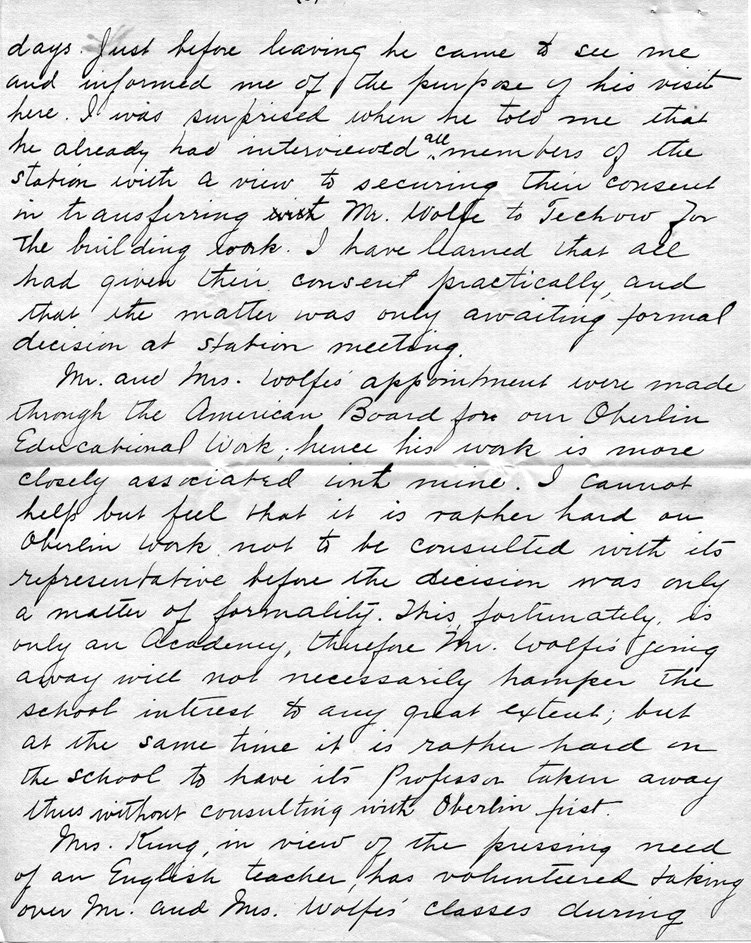 days. Just before leaving he came to see me
and informed me of the purpose of his visit
here. I was surprised when he told me that
he already had interviewed all members of the
station with a view to securing their consent
in transferring with Mr. Wolfe to Techow for
the building work. I have learned that all
had given their consent practically, and
that the matter was only awaiting formal
decision at station meeting.
Mr. and Mrs. Wolfe's appointment were made
through the American Board for our Oberlin
Educational Work; hence his work is more
closely associated with mine. I cannot
help but feel that it is rather hard on
Oberlin Work not to be consulted with its
representative before the decision was only
a matter of formality. This, fortunately, is
only an Academy, therefore Mr. Wolfe's going
away will not necessarily hamper the
school interest to any great extent; but
at the same time it is rather hard on
the school to have its Professor taken away
thus without consulting with Oberlin first.
Mrs. Kung, in view of the pressing need
of an English teacher, has volunteered taking
over Mr. and Mrs. Wolfe's classes during